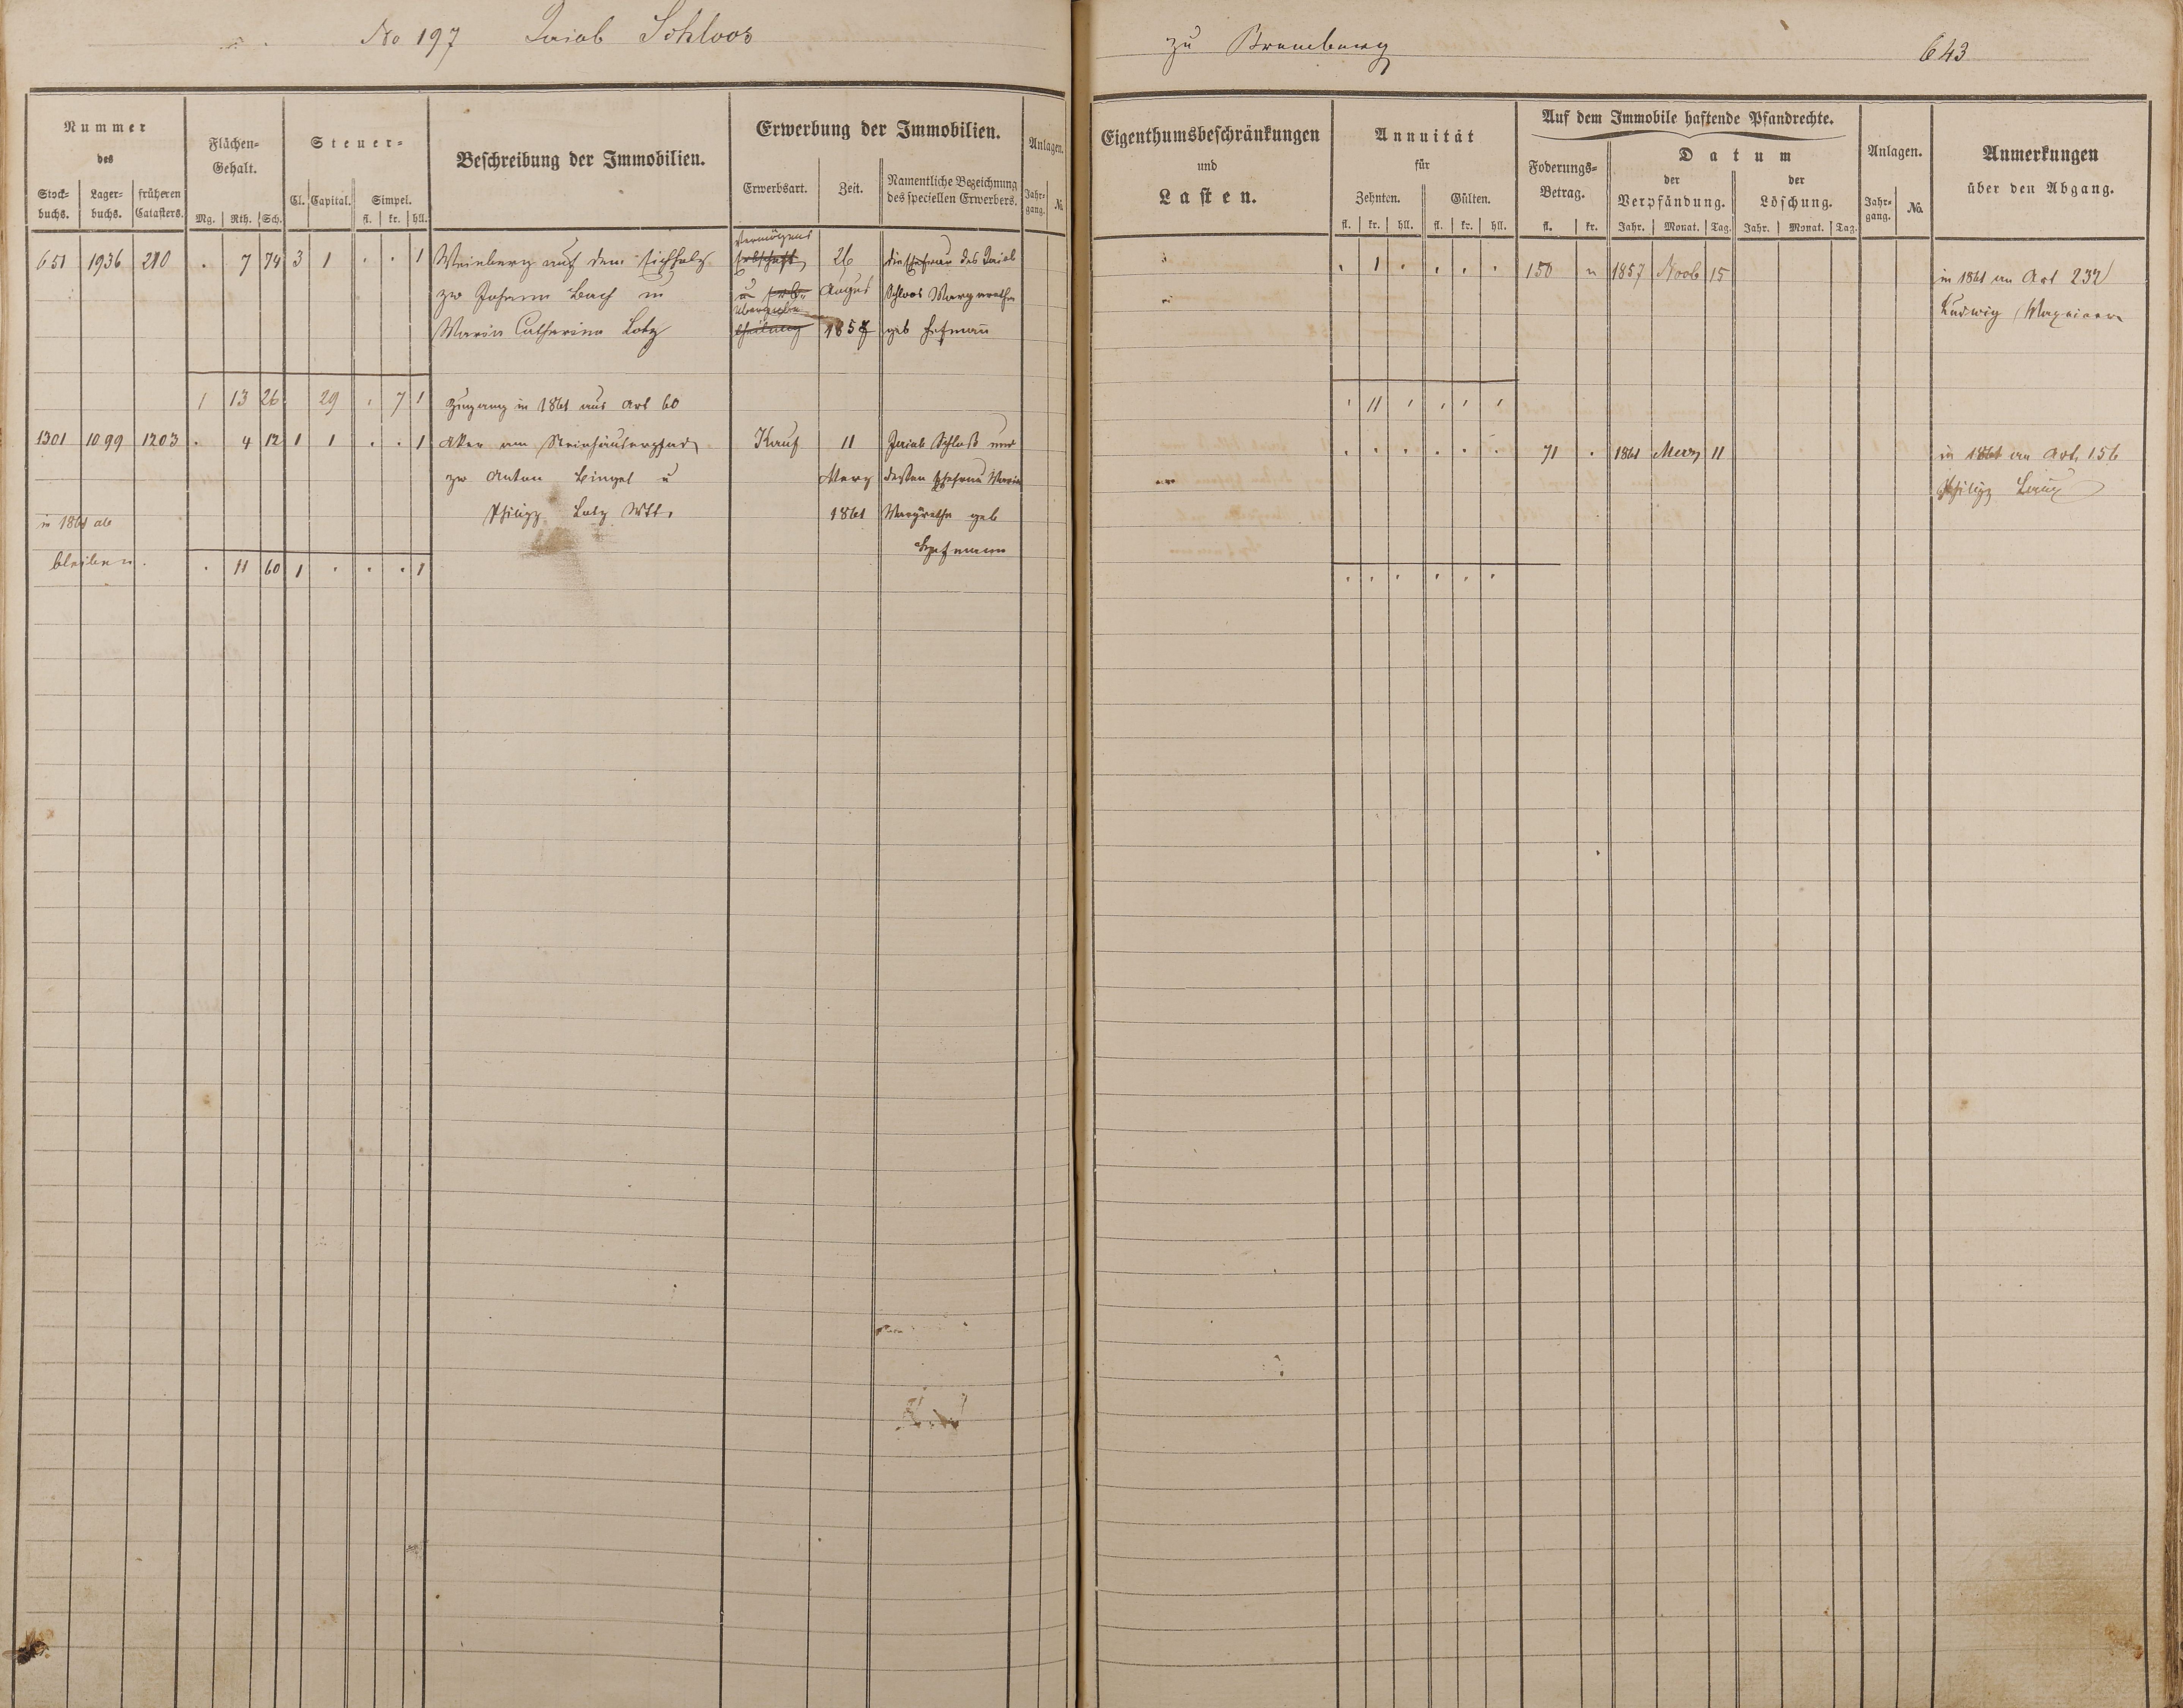 No 197 Jacob Schloos
zu Bremberg 643
Nummer
des
Stock-
buchs.
Lager-
buchs.
früheren
Catasters.
Flächen-
Gehalt.
Mg. Rth. Sch.
Steuer-
Cl. Capital. Simpel.
fl. kr. hll.
Beschreibung der Immobilien.
Erwerbung der Immobilien.
Erwerbsart. Zeit.
Namentliche Bezeichnung
des speciellen Erwerbers.
Anlagen.
Jahr-
gang. No.
Eigenthumsbeschränkungen
und
Lasten.
Annuität
für
Zehnten. Gülten.
fl. kr. hll. fl. kr. hll.
Auf dem Immobile haftende Pfandrechte.
Foderungs-
Betrag.
fl. kr.
Datum
der
Verpfändung.
Jahr. Monat. Tag.
der
Löschung.
Jahr. Monat. Tag.
Anlagen.
Jahr-
gang. No.
Anmerkungen
über den Abgang.
Vermögens
651 1936 210 . 7 74 3 1 . . 1 Weinberg auf dem Eichholz Erbschaft 26 die Ehefrau des Jacob
zw Johann Bach u August Schloos Margarethe
Übergabe
Maria Catharina Lotz theilung 1857 geb Hofmann
. 1 . . . . 150 1857 Novb 15 in 1861 an Art 232
Ludwig
1 13 26 29 . 7 1 Zugang in 1861 aus Art 60
. 11 . . . .
1301 1099 1203 . 4 12 1 1 . . 1 Aker am Kauf 11 Jacob Schloß und
zw Anton Bingel u Merz dessen Ehefrau Maria
Philipp Lotz Wtt. 1861 Margrethe geb
Hofmann
. . . . . . 71 . 1861 Merz 11 in 1861 an Art. 156
Philipp
in 1861 ab
bleiben. . 11 60 1 . . . 1
. . . . . .